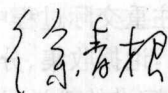 徐青根